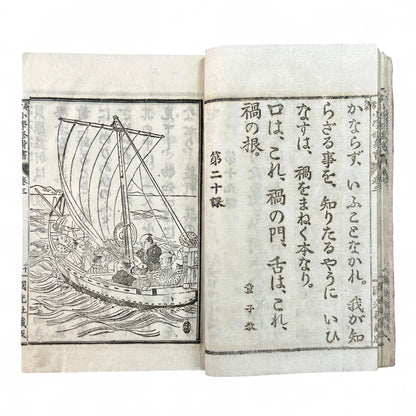 かならず、いふことなかれ。我が知
らざる事を、知りたるやうに いひ
なすは、禍をまねく本なり。
口は、これ、禍の門、舌は、これ、
禍の根。 童子教
第二十課
國光社藏版